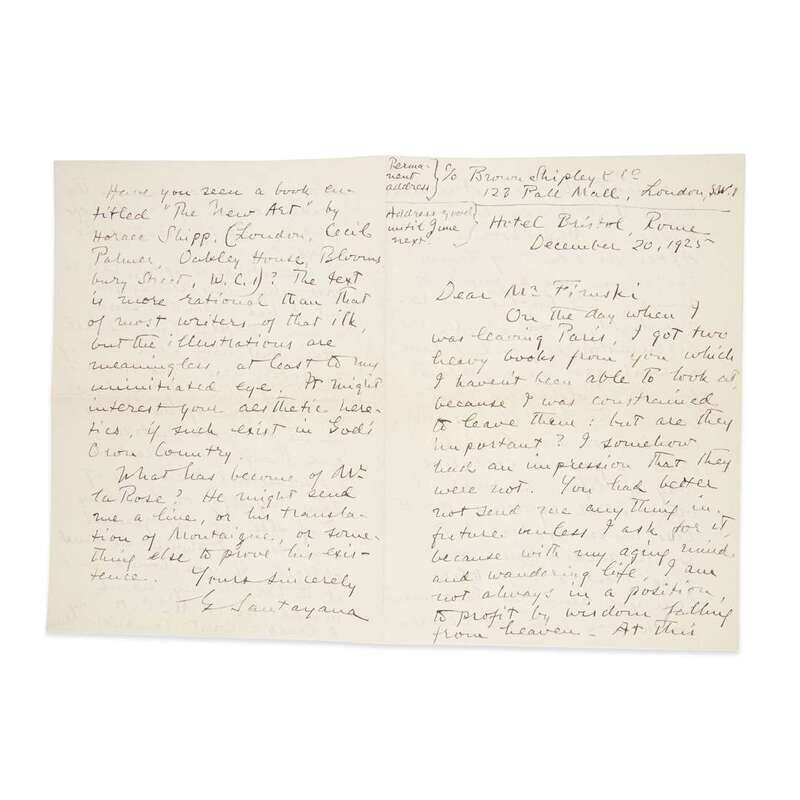 Perma-
nent
address} c/o Brown Shipley & Co
123 Pall Mall, London, S.W.1
Address good
until June
next. } Hotel Bristol, Rome
December 20, 1925
Dear Mr Firuski
On the day when I
was leaving Paris, I got two
heavy books from you which
I haven't been able to look at,
because I was constrained
to leave them: but are they
important? I somehow
had an impression that they
were not. You had better
not send me anything in
future unless I ask for it,
because with my aging mind
and wandering life, I am
not always in a position,
to profit by wisdom falling
from heaven - At this
Have you seen a book en-
titled "The New Art" by
Horace Shipp, (London, Cecil
Palmer, Oakley House, Blooms
bury Street, W.C.1)? The text
is more rational than that
of most writers of that ilk,
but the illustrations are
meaningless, at least to my
uninitiated eye. It might
interest your aesthetic here-
tics, if such exist in God's
Own Country.
What has become of Mr
la Rose? He might send
me a line, or his transla-
tion of Montaigne, or some-
thing else to prove his exis-
tence. Yours sincerely
G Santayana